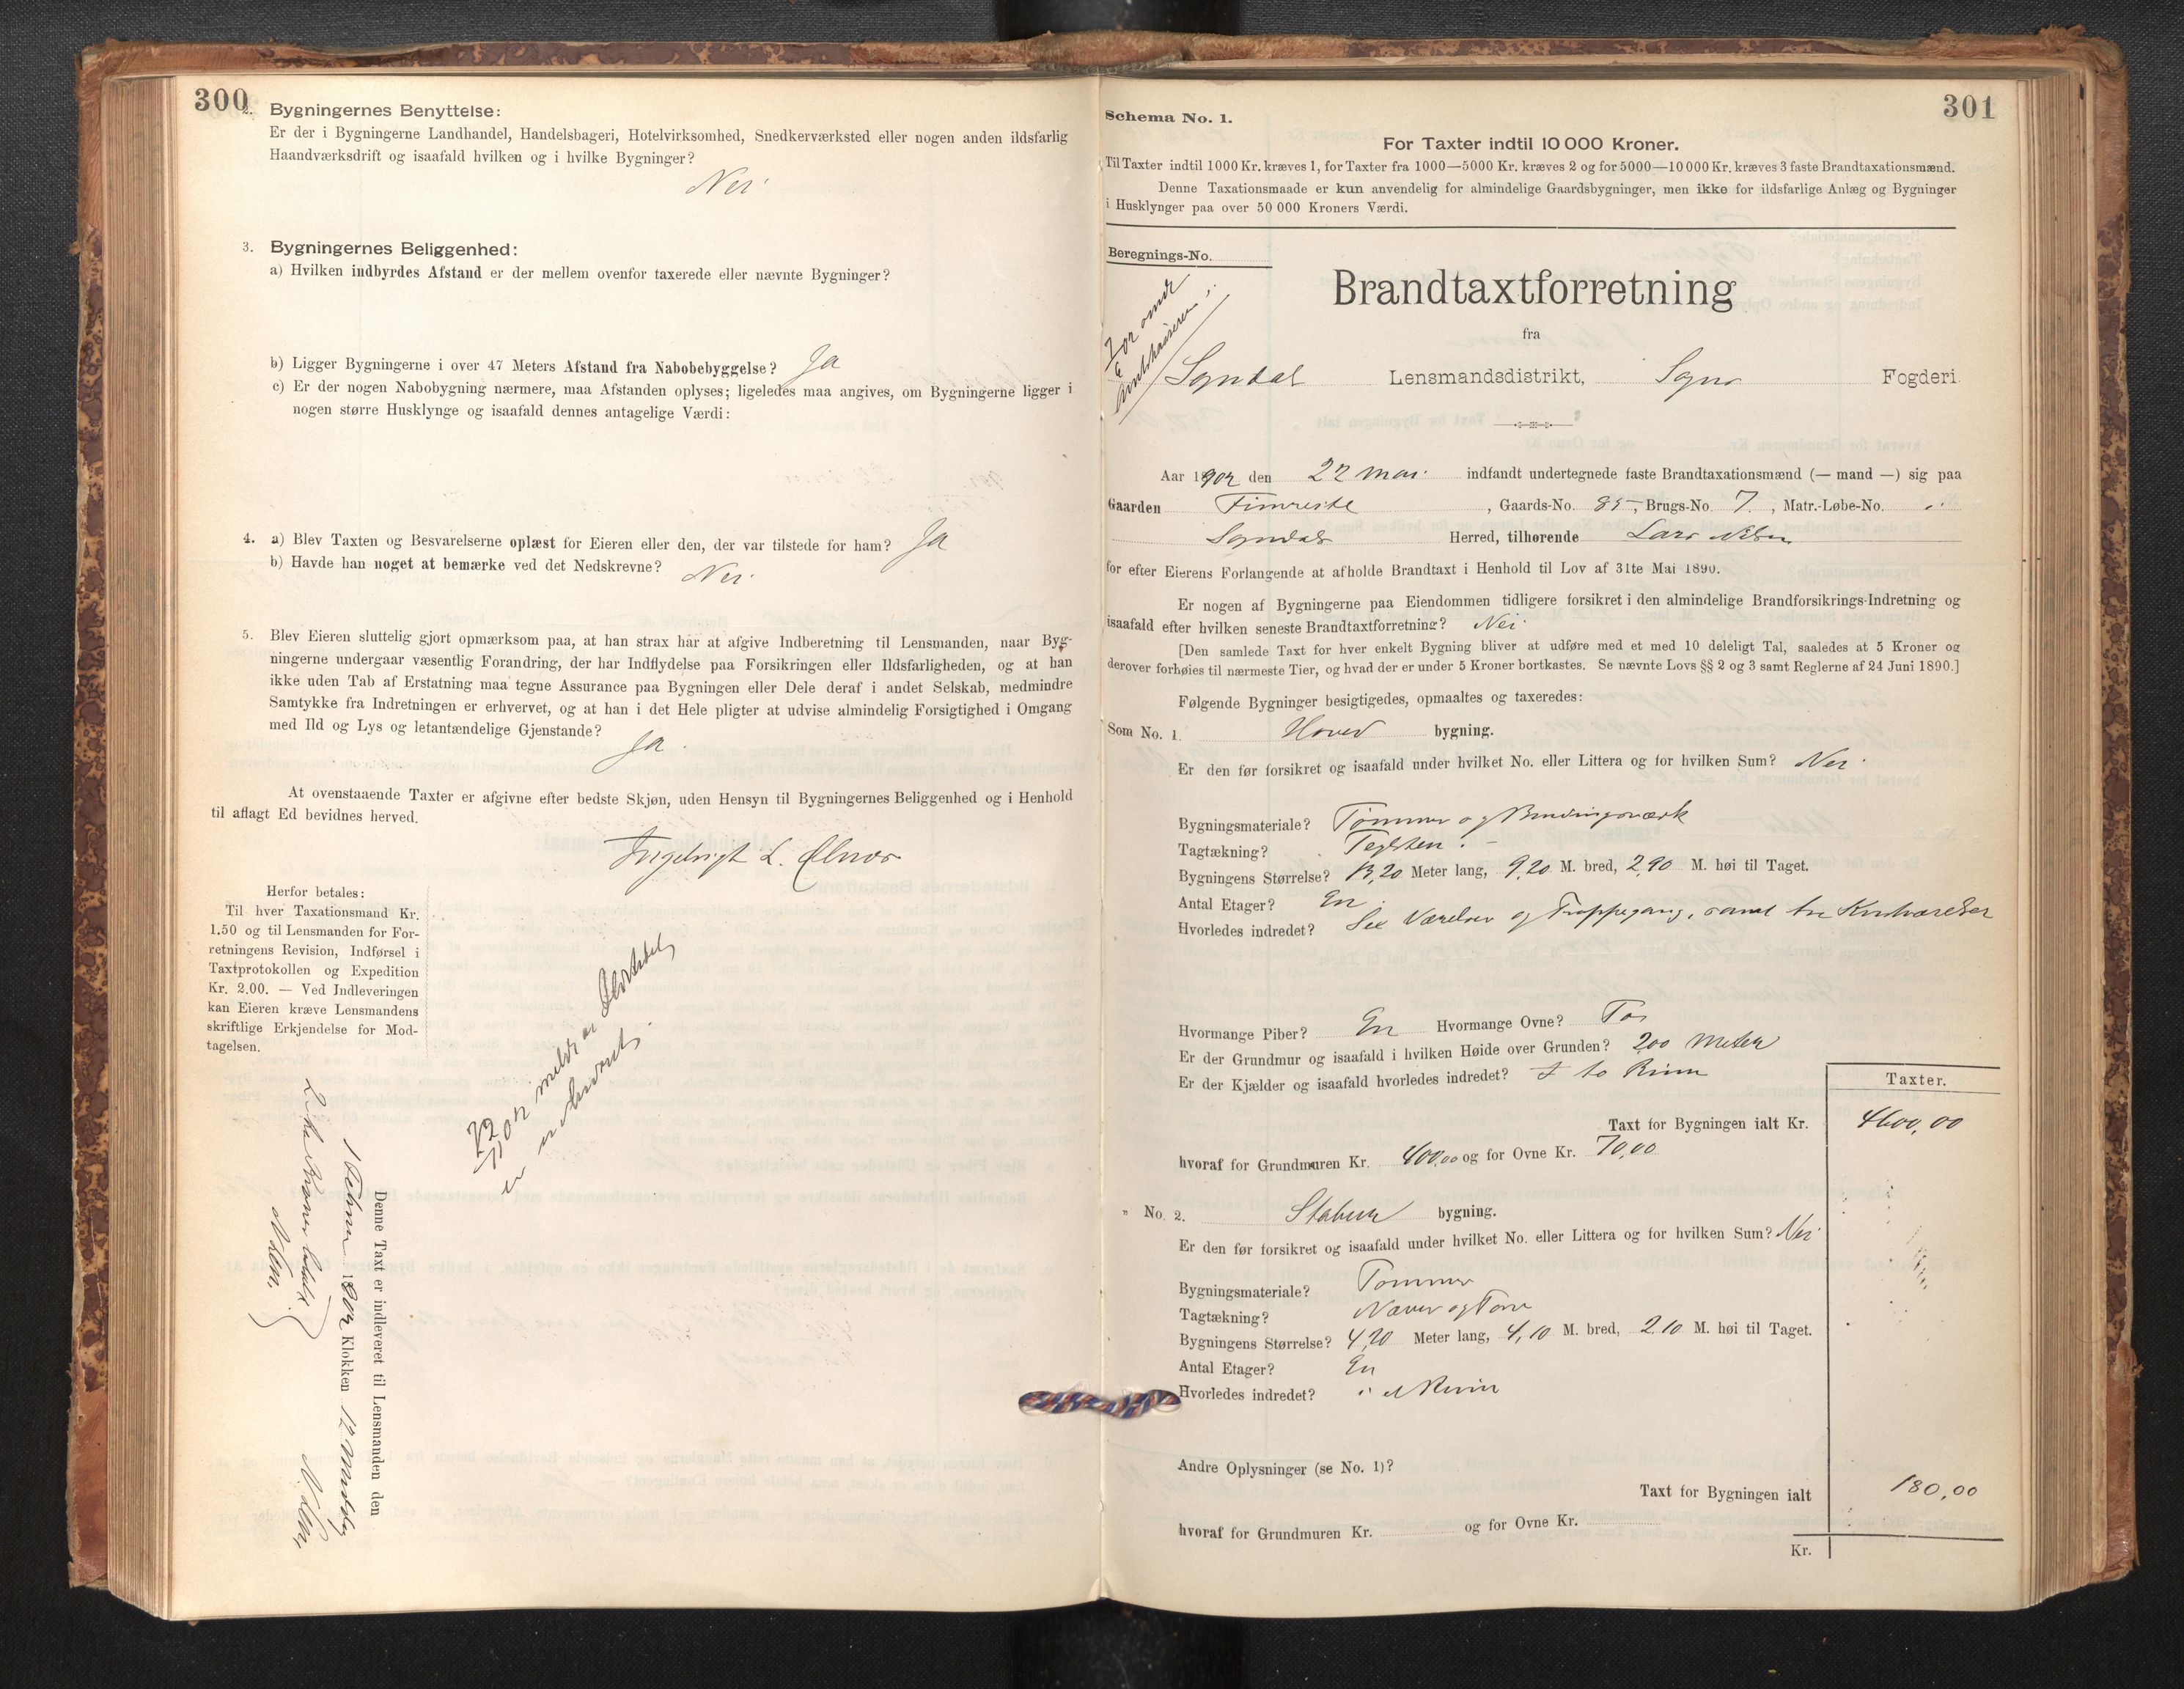 300
2. Bygningernes Benyttelse:
Er der i Bygningerne Landhandel, Handelsbageri, Hotelvirksomhed, Snedkerværksted eller nogen anden ildsfarlig
Haandværksdrift og isaafald hvilken og i hvilke Bygninger?
Nei
3. Bygningernes Beliggenhed:
a) Hvilken indbyrdes Afstand er der mellem ovenfor taxerede eller nævnte Bygninger?
b) Ligger Bygningerne i over 47 Meters Afstand fra Nabobebyggelse? Ja
c) Er der nogen Nabobygning nærmere, maa Afstanden oplyses; ligeledes maa angives, om Bygningerne ligger i
nogen større Husklynge og isaafald dennes antagelige Værdi:
4. a) Blev Taxten og Besvarelserne oplæst for Eieren eller den, der var tilstede for ham? Ja
b) Havde han noget at bemærke ved det Nedskrevne? Nei.
5. Blev Eieren sluttelig gjort opmærksom paa, at han strax har at afgive Indberetning til Lensmanden, naar Byg-
ningerne undergaar væsentlig Forandring, der har Indflydelse paa Forsikringen eller Ildsfarligheden, og at han
ikke uden Tab af Erstatning maa tegne Assurance paa Bygningen eller Dele deraf i andet Selskab, medmindre
Samtykke fra Indretningen er erhvervet, og at han i det Hele pligter at udvise almindelig Forsigtighed i Omgang
med Ild og Lys og letantændelige Gjenstande?
Ja.
At ovenstaaende Taxter er afgivne efter bedste Skjøn, uden Hensyn til Bygningernes Beliggenhed og i Henhold
til aflagt Ed bevidnes herved.
Ingebrigt L.
Herfor betales:
Til hver Taxationsmand Kr.
1.50 og til Lensmanden for For-
retningens Revision, Indførsel i
Taxtprotokollen og Expedition
Kr. 2.00. — Ved Indleveringen
kan Eieren kræve Lensmandens
skriftlige Erkjendelse for Mod-
tagelsen.
Denne Taxt er indleveret til Lensmanden den
1 1902 Klokken 12 Middag
Kroner betalt.
301
Schema No. 1.
For Taxter indtil 10 000 Kroner.
Til Taxter indtil 1000 Kr. kræves 1, for Taxter fra 1000—5000 Kr. kræves 2 og for 5000—10 000 Kr. kræves 3 faste Brandtaxationsmænd.
Denne Taxationsmaade er kun anvendelig for almindelige Gaardsbygninger, men ikke for ildsfarlige Anlæg og Bygninger
i Husklynger paa over 50 000 Kroners Værdi.
Beregnings-No.
Brandtaxtforretning
fra
Sogndal Lensmandsdistrikt, Sogns Fogderi
Aar 1902 den 22 Mai indfandt undertegnede faste Brandtaxationsmænd (— mand —) sig paa
Gaarden Fimreite, Gaards-No. 85, Brugs-No. 7, Matr.-Løbe-No.
Sogndals Herred, tilhørende Lars
for efter Eierens Forlangende at afholde Brandtaxt i Henhold til Lov af 31te Mai 1890.
Er nogen af Bygningerne paa Eiendommen tidligere forsikret i den almindelige Brandforsikrings-Indretning og
isaafald efter hvilken seneste Brandtaxtforretning? Nei
[Den samlede Taxt for hver enkelt Bygning bliver at udføre med et med 10 deleligt Tal, saaledes at 5 Kroner og
derover forhøies til nærmeste Tier, og hvad der er under 5 Kroner bortkastes. Se nævnte Lovs §§ 2 og 3 samt Reglerne af 24 Juni 1890.]
Følgende Bygninger besigtigedes, opmaaltes og taxeredes:
Som No. 1. Hoved bygning.
Er den før forsikret og isaafald under hvilket No. eller Littera og for hvilken Sum? Nei
Bygningsmateriale? Tømmer og Bindingsværk
Tagtækning? Teglsten.
Bygningens Størrelse? 13,20 Meter lang, 9,20 M. bred, 2,90 M. høi til Taget.
Antal Etager? En.
Hvorledes indredet? Sex Værelser og Trappegang, samt tre Kvistværelser
Hvormange Piber? En Hvormange Ovne? To
Er der Grundmur og isaafald i hvilken Høide over Grunden? 2,00 Meter
Er der Kjælder og isaafald hvorledes indredet? I to Rum
Taxter.
Taxt for Bygningen ialt Kr. 4600,00
hvoraf for Grundmuren Kr. 400,00 og for Ovne Kr. 70,00
" No. 2. Stabur bygning.
Er den før forsikret og isaafald under hvilket No. eller Littera og for hvilken Sum? Nei
Bygningsmateriale? Tømmer
Tagtækning? Næver og Torv
Bygningens Størrelse? 4,20 Meter lang, 4,10 M. bred, 2.10 M. høi til Taget.
Antal Etager? En
Hvorledes indredet?
Andre Oplysninger (se No. 1)?
Taxt for Bygningen ialt 180,00
hvoraf for Grundmuren Kr. og for Ovne Kr.
Kr.